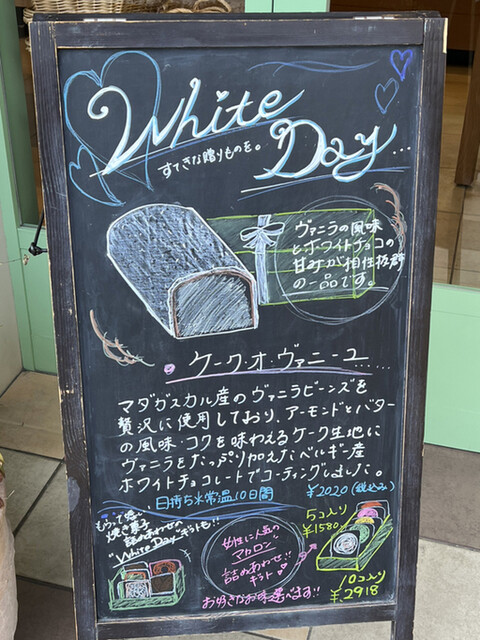 White
Day...
すてきな贈りものを。
ヴァニラの風味
とホワイトチョコの
甘みが相性抜群
の一品です。
ケーク・オ・ヴァニーユ......
マダガスカル産のヴァニラビーンズを
贅沢に使用しており、アーモンドとバター
の風味・コクを味わえるケーク生地に
ヴァニラをたっぷり加えたベルギー産
ホワイトチョコレートでコーティングしました。
日持ち※常温10日間
¥2020(税込み)
もらって嬉しい
焼き菓子
詰めあわせの
"White Day"ギフトも!!
女性に人気の
マカロン
詰めあわせ!!
ギフト
お好きなお味選べます!!
5コ入り
¥1580
10コ入り
¥2918